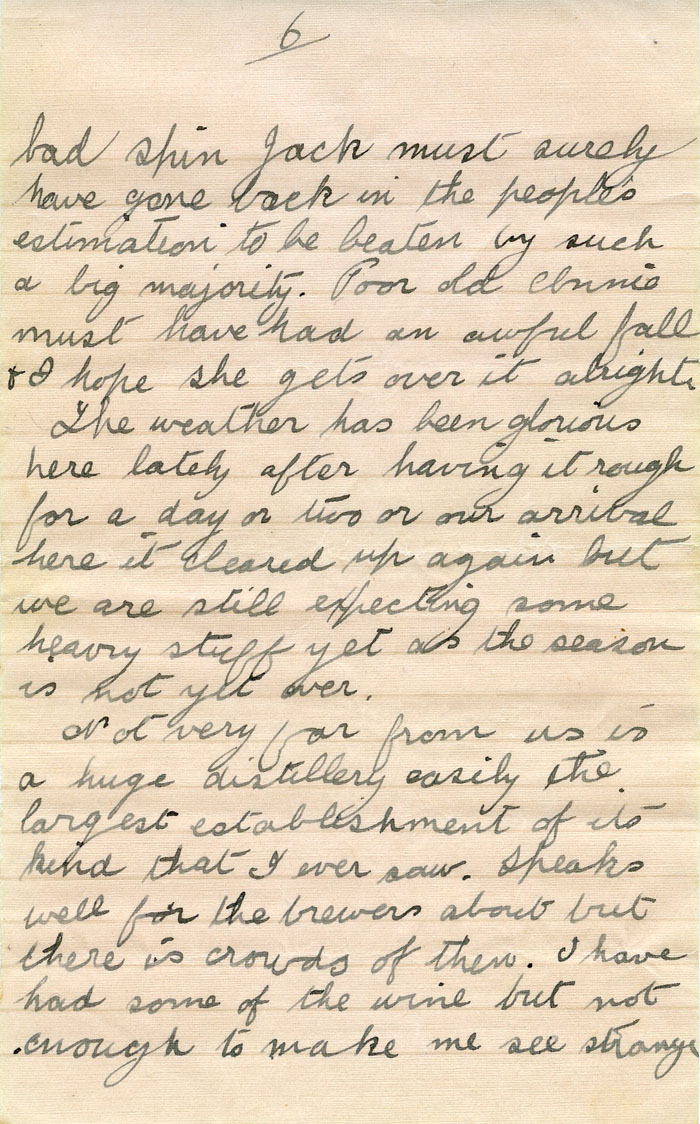 6
bad spin Jack must surely
have gone back in the people's
estimation to be beaten by such
a big majority. Poor old Annie
must have had an awful fall
& I hope she gets over it alright
The weather has been glorious
here lately after having it rough
for a day or two or our arrival
here it cleared up again but
we are still expecting some
heavy stuff yet as the season
is not yet over.
Not very far from us is
a huge distillery easily the
largest establishment of its
kind that I ever saw. Speaks
well for the brewers about but
there is crowds of them. I have
had some of the wine but not
enough to make me see strange